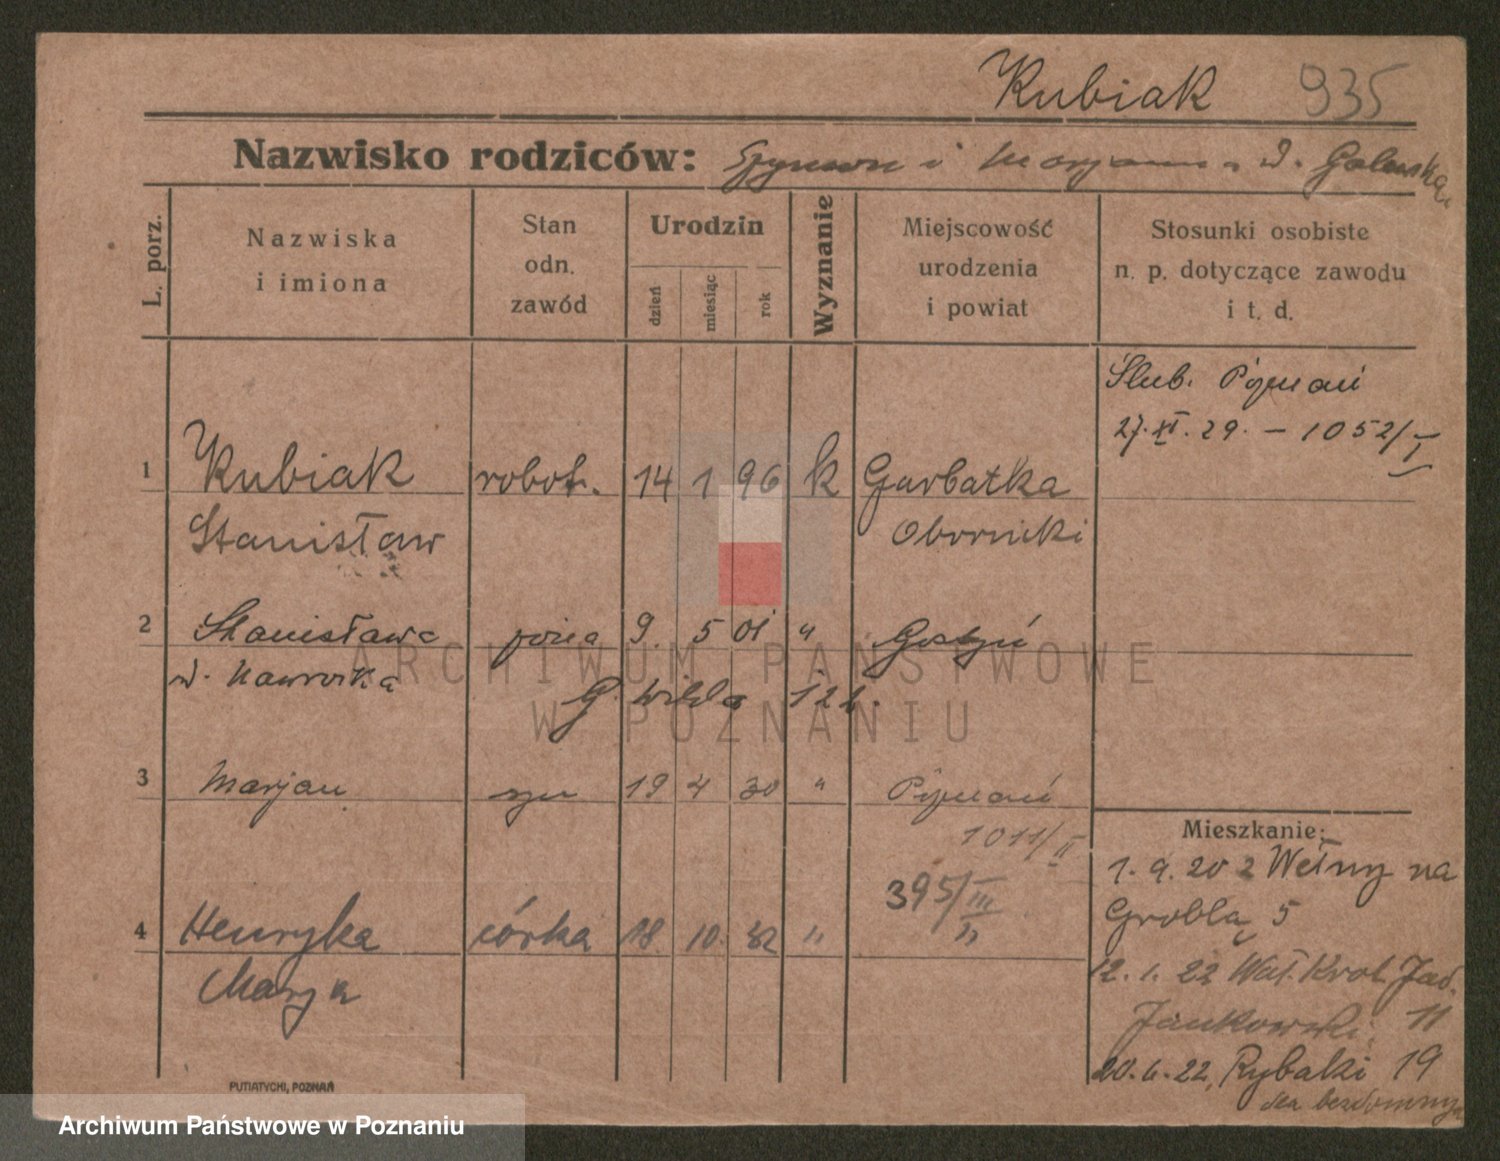 Kubiak 935
Nazwisko rodziców: Szymon i Marjanna d.
L. porz.
Nazwiska
i imiona
Stan
odn.
zawód
Urodzin
dzień
miesiąc
rok
Wyznanie
Miejscowość
urodzenia
i powiat
Stosunki osobiste
n. p. dotyczące zawodu
i t. d.
Ślub. Poznań
27.XI.29. – 1052/I
1 Kubiak robotn. 14 1 96 k Garbatka
Stanisław Obornicki
2 Stanisława żona 9. 5 01 " Gostyń
d. Nawrocka
G. Wilda
3 Marjan syn 19 4 30 " Poznań
1011/II
395/III
4 Henryka córka 18. 10. 32 " "
Marja
Mieszkanie:
1.9.20 z Wełny na
Grobla 5
12.1.22 Wat. Krol. Jad.
Jankowski 11
20.6.22, Rybaki 19
dla bezdomnych
PUTIATYCKI, POZNAŃ
ARCHIWUM PAŃSTWOWE
W POZNANIU
Archiwum Państwowe w Poznaniu